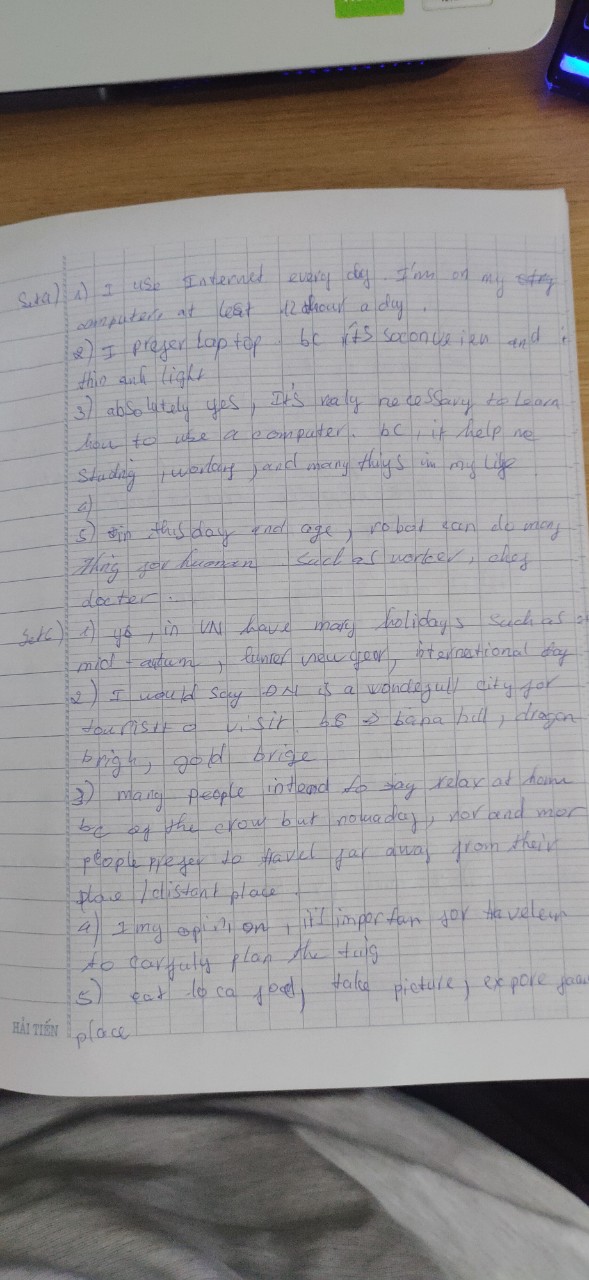 1) I use Internet every day. I'm on my
computer at least 12 hour a day.
2) I prefer Laptop. bc it's so conveien and
thin anh light
3) absolutely yes, It's realy necessary to learn
how to use a computer. bc, it help me
studing, working, and many things in my life
4)
5) in this day and age, robot can do many
thing for human such as worker, chef
docter.
1) yes, in VN have many holidays such as
mid-autum, lunner new year, international day
2) I would say DN is a wondefull city for
visit. => bana hill, dragon
brigh, gold brige
3) many people intend to say relax at home
bc of the crow but nowaday, mor and mor
people prefer to travel far away from their
place / distant place.
4) I my opinion, it's importan for traveleur
to carfuly plan the
5) eat loca food, take picture, expore
place
HẢI TIẾN